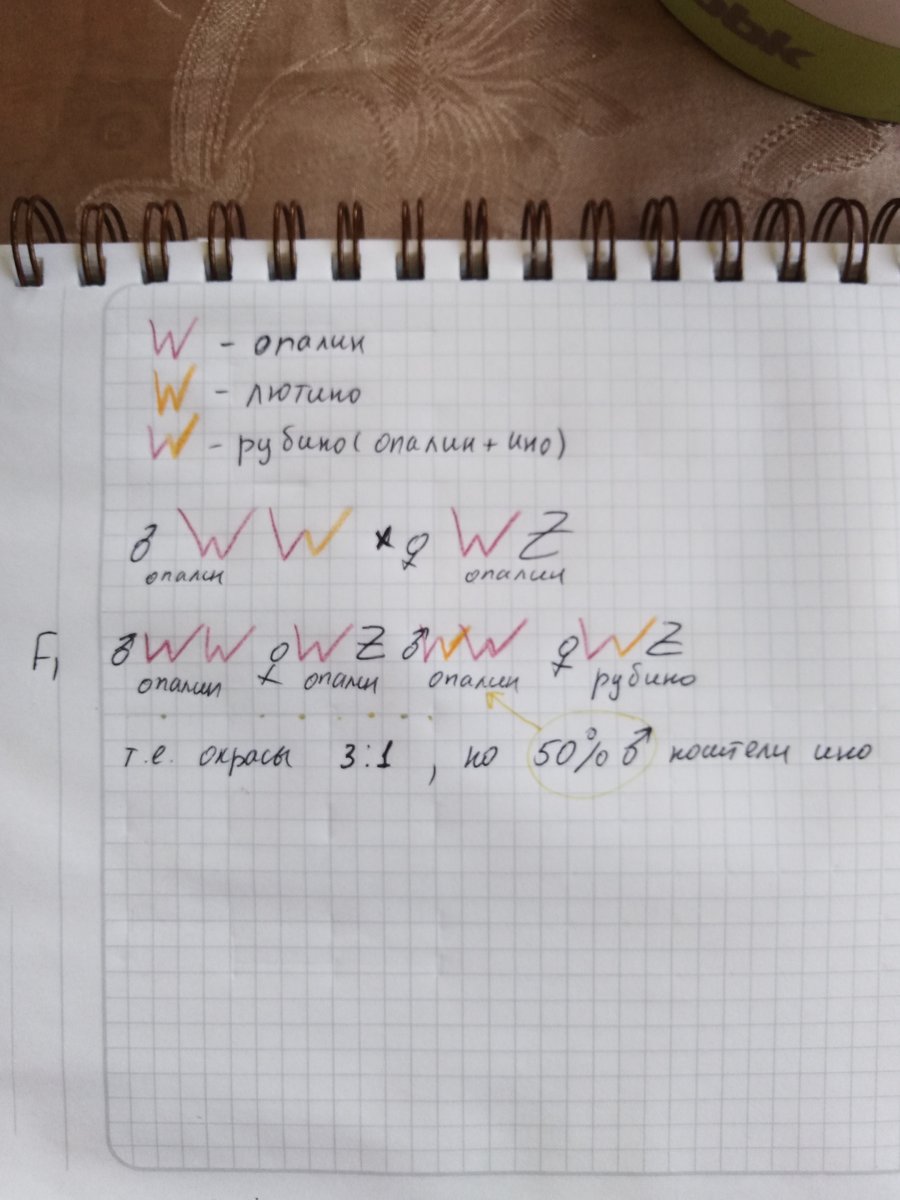 W - опалин
W - лютино
W - рубино (опалин + ино)
♂ W W × ♀ W Z
опалин опалин
F1 ♂ W W ♀ W Z ♂ W W ♀ W Z
опалин опалин опалин рубино
т.е. окрасы 3:1, но 50% ♂ носители ино